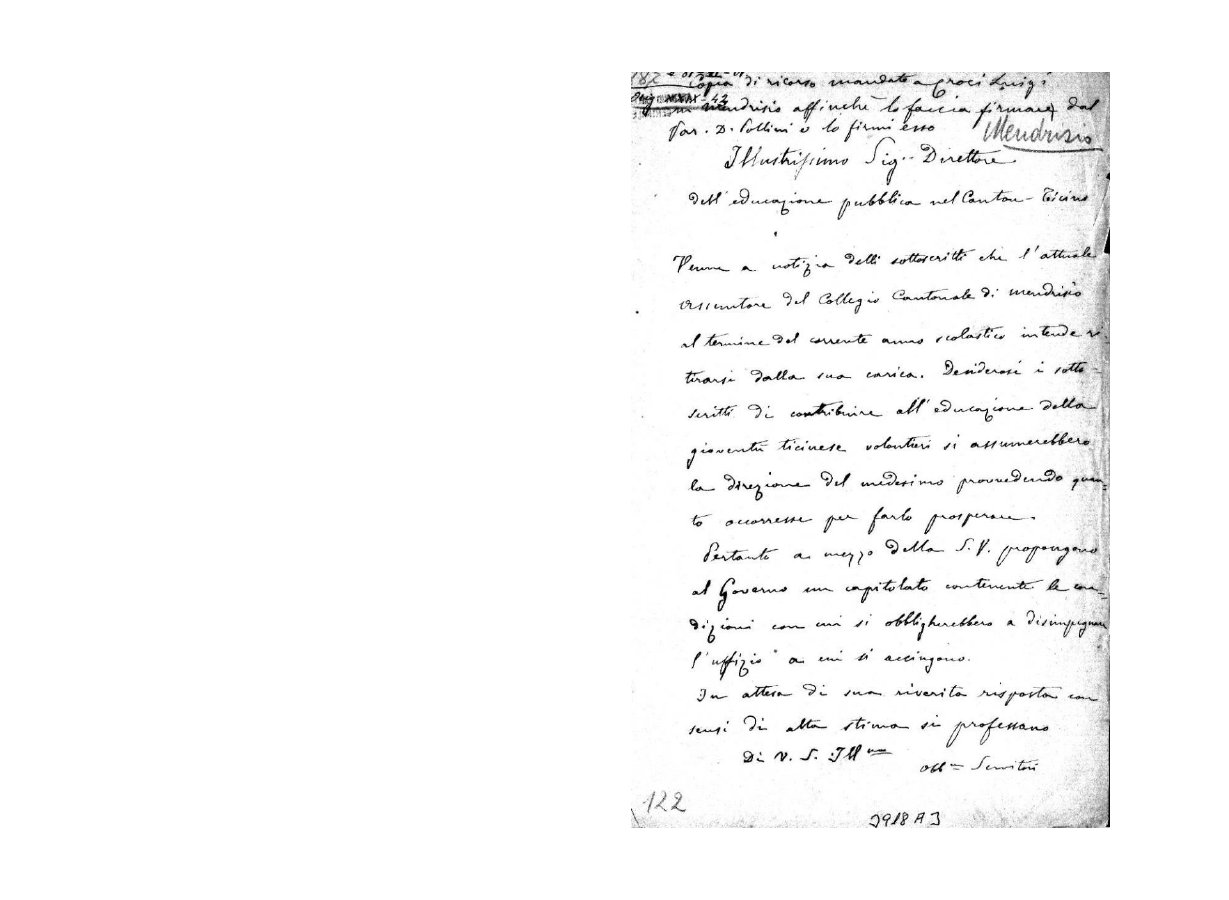 182
Copia di ricorso mandato a Croci Luigi
in mendrisio affinchè lo faccia firmare dal
Par. D. Pollini e lo firmi esso
Mendrisio
Illustrissimo Sig.r Direttore
dell'educazione pubblica nel Canton-Ticino
Venne a notizia delli sottoscritti che l'attuale
assuntore del Collegio Cantonale di mendrisio
al termine del corrente anno scolastico intende ri-
tirarsi dalla sua carica. Desiderosi i sotto-
scritti di contribuire all'educazione della
gioventù ticinese volontieri si assumerebbero
la direzione del medesimo provvedendo quan-
to occorresse per farlo prosperare.
Pertanto a mezzo della S.V. propongono
al Governo un capitolato contenente le con-
dizioni con cui si obbligherebbero a disimpegnare
l'uffizio a cui si accingono.
In attesa di sua riverita risposta con
sensi di alta stima si professano
Di V. S. Ill.ma
Obb.mi Servitori
122
2918 A 3